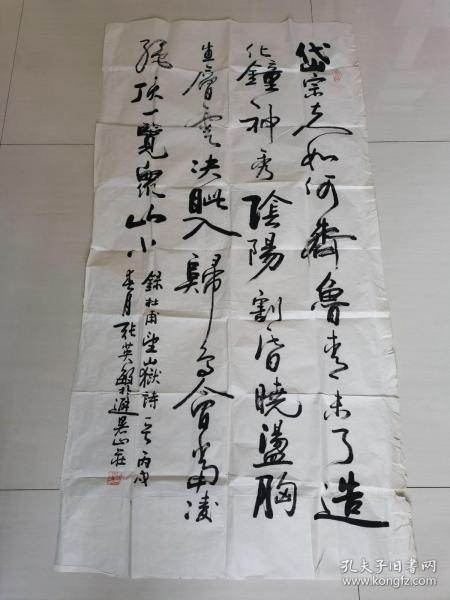 岱宗夫如何齊魯青未了造
化鐘神秀陰陽割昏曉盪胸
生層雲決眥入歸鳥會當凌
絕頂一覽眾山小
錄杜甫望山嶽詩一首丙戌
春月張英敏於避暑山莊
孔夫子旧书网
www.kongfz.com